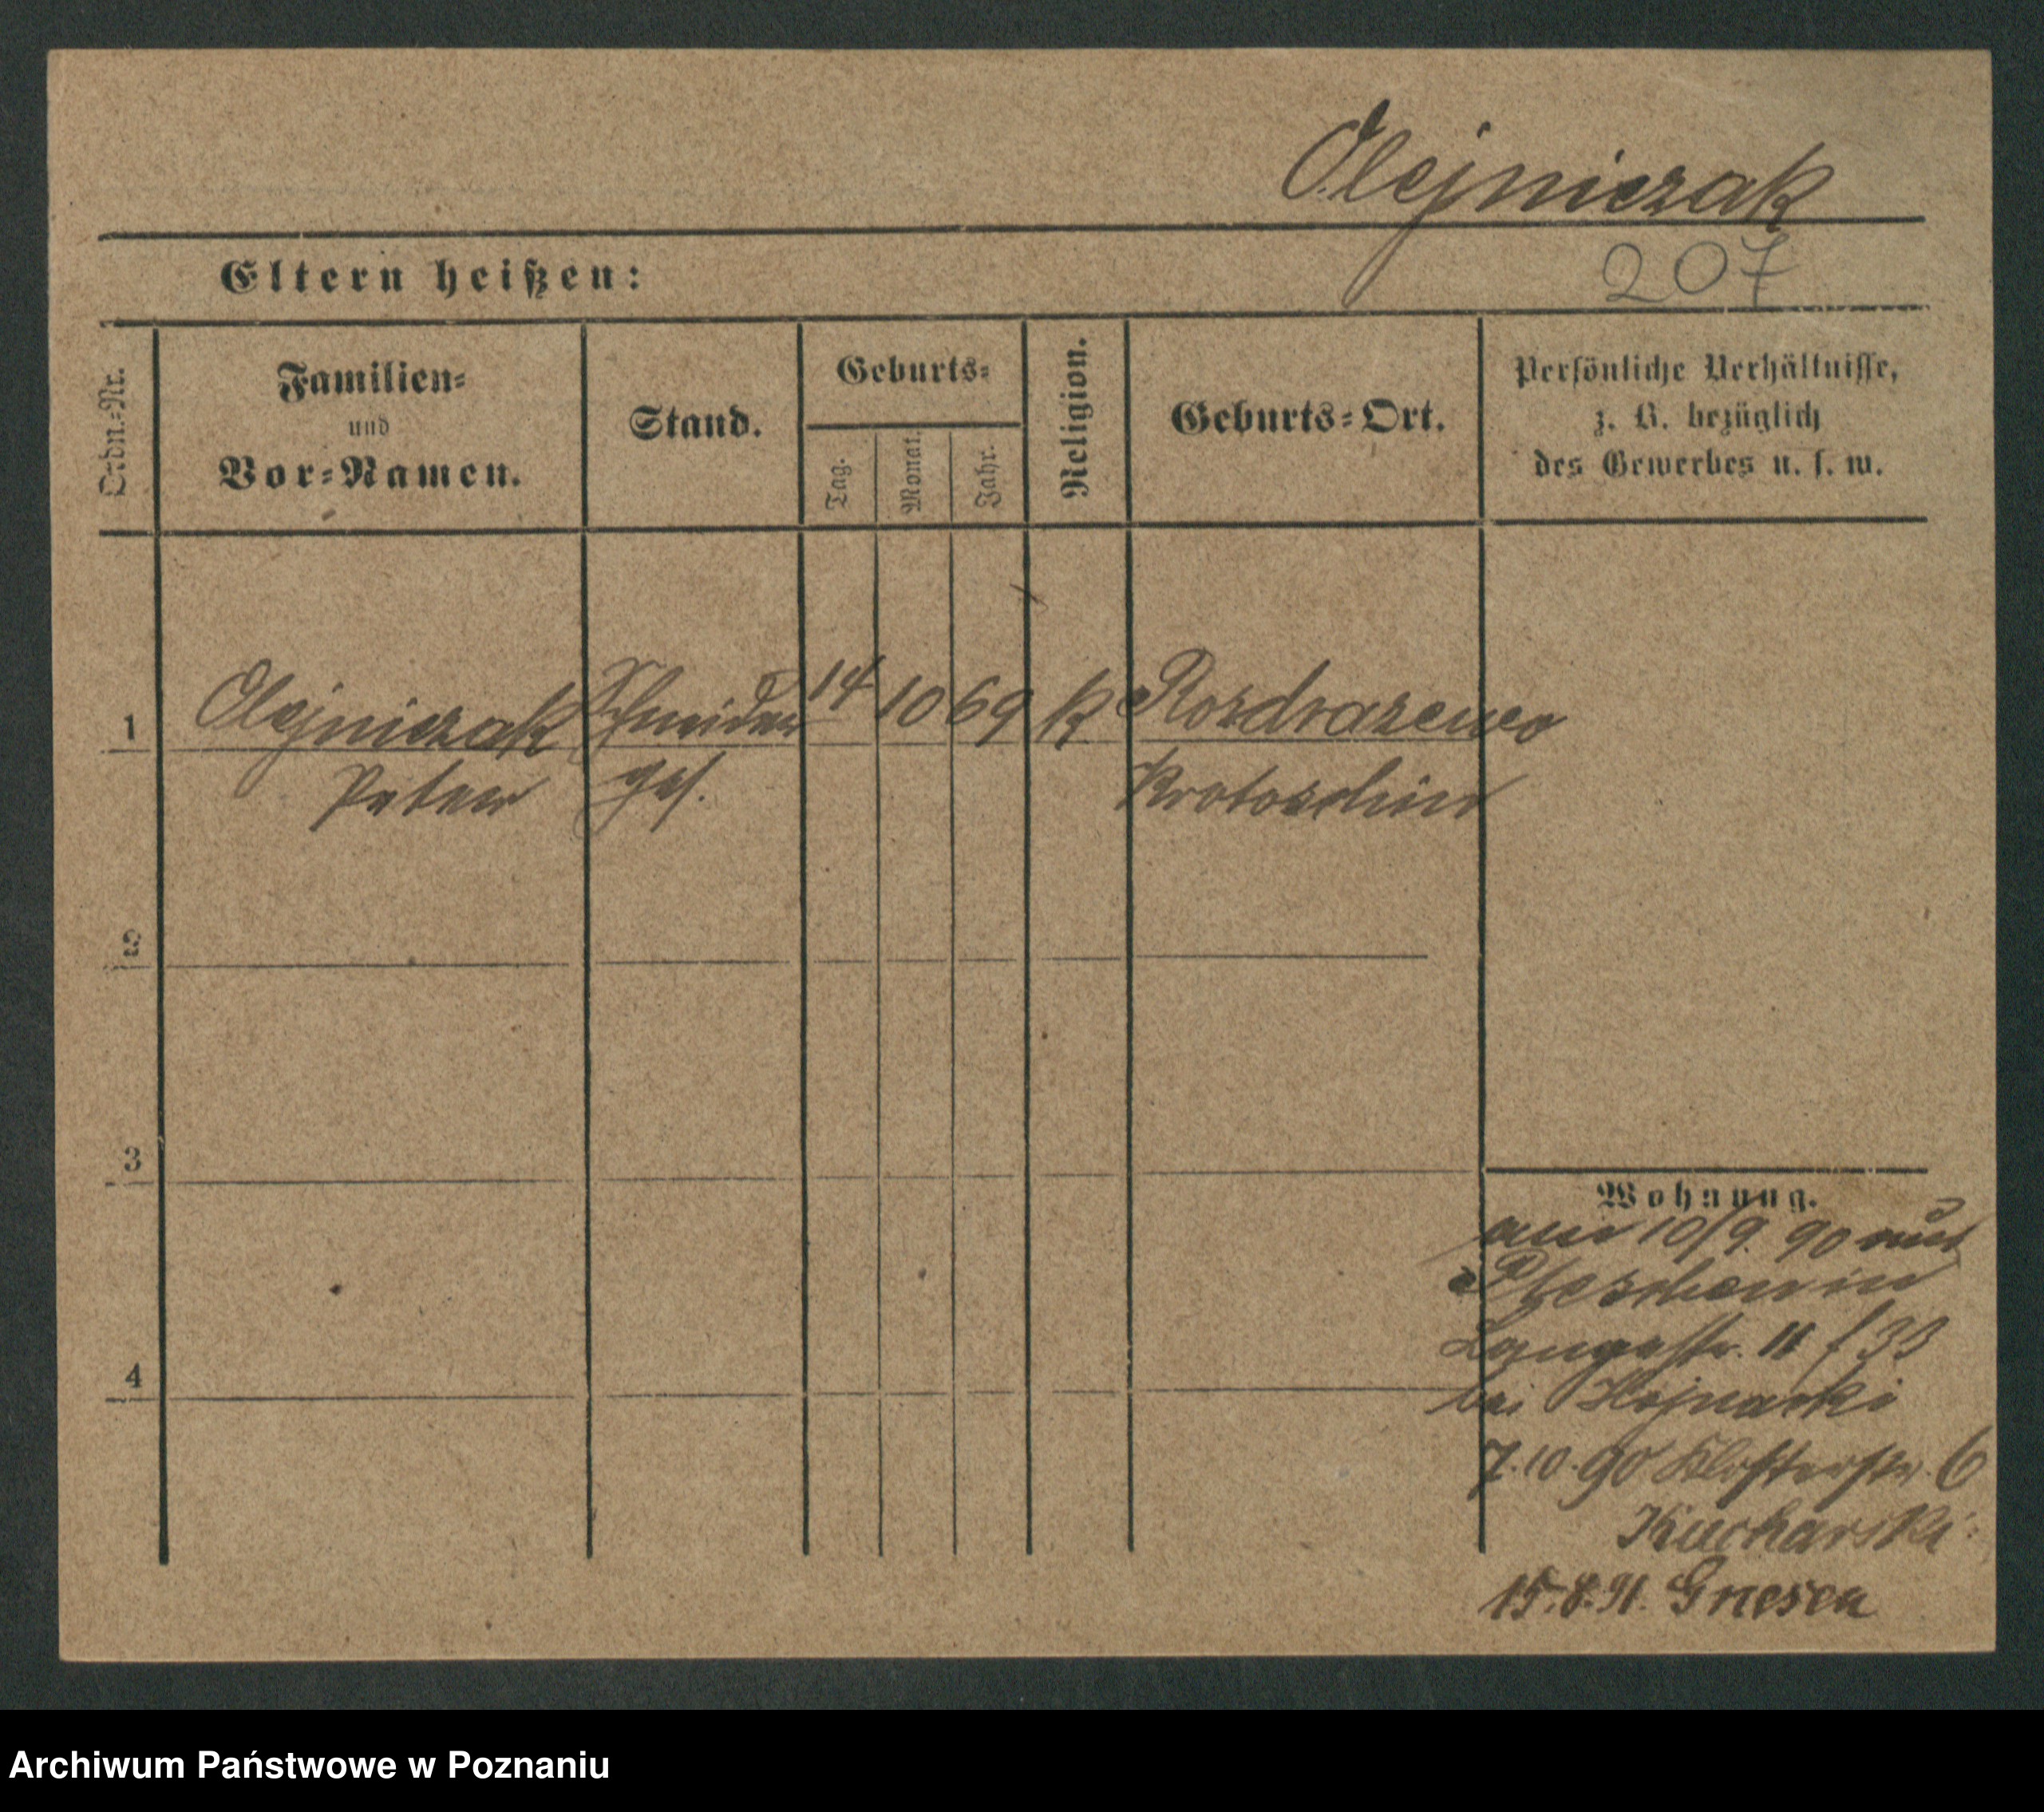 Olejniczak
207
Eltern heißen:
Ordn.=Nr.
Familien=
und
Vor=Namen.
Stand.
Geburts=
Tag.
Monat.
Jahr.
Religion.
Geburts=Ort.
Persönliche Verhältnisse,
z. B. bezüglich
des Gewerbes u. s. w.
1 Olejniczak Schneider 14 10 69 k Rozdrazewo
Peter ges. Krotoschin
2
3
4
Wohnung.
am 10/9. 90 aus
Pleschen in
Langestr. 11
bei Hojnacki
7.10.90 Klosterstr. 6
Kucharski
15.8.91. Gnesen
Archiwum Państwowe w Poznaniu